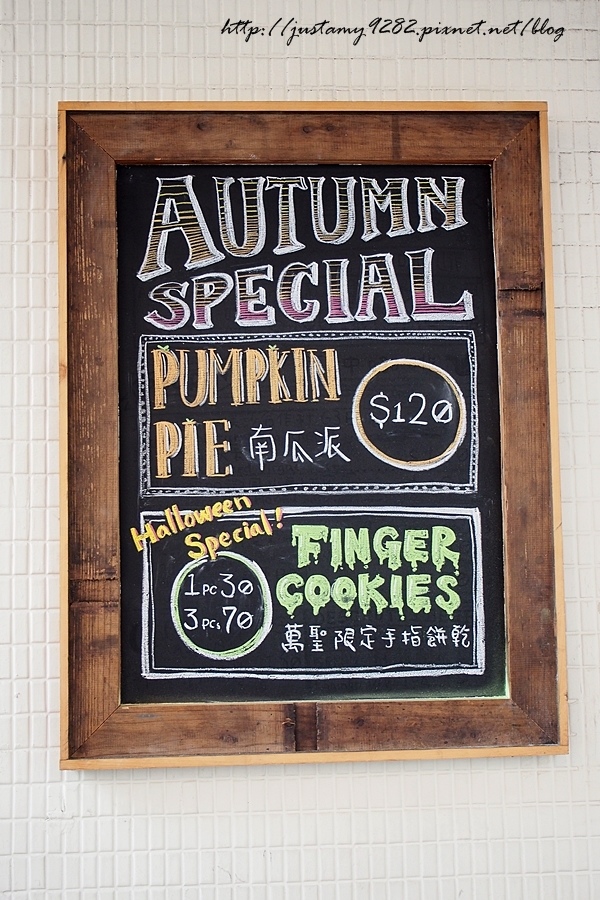 http://justamy9282.pixnet.net/blog
AUTUMN
SPECIAL
PUMPKIN
PIE 南瓜派
$120
Halloween
Special!
FINGER
COOKIES
1PC30
3PCs70
萬聖限定手指餅乾